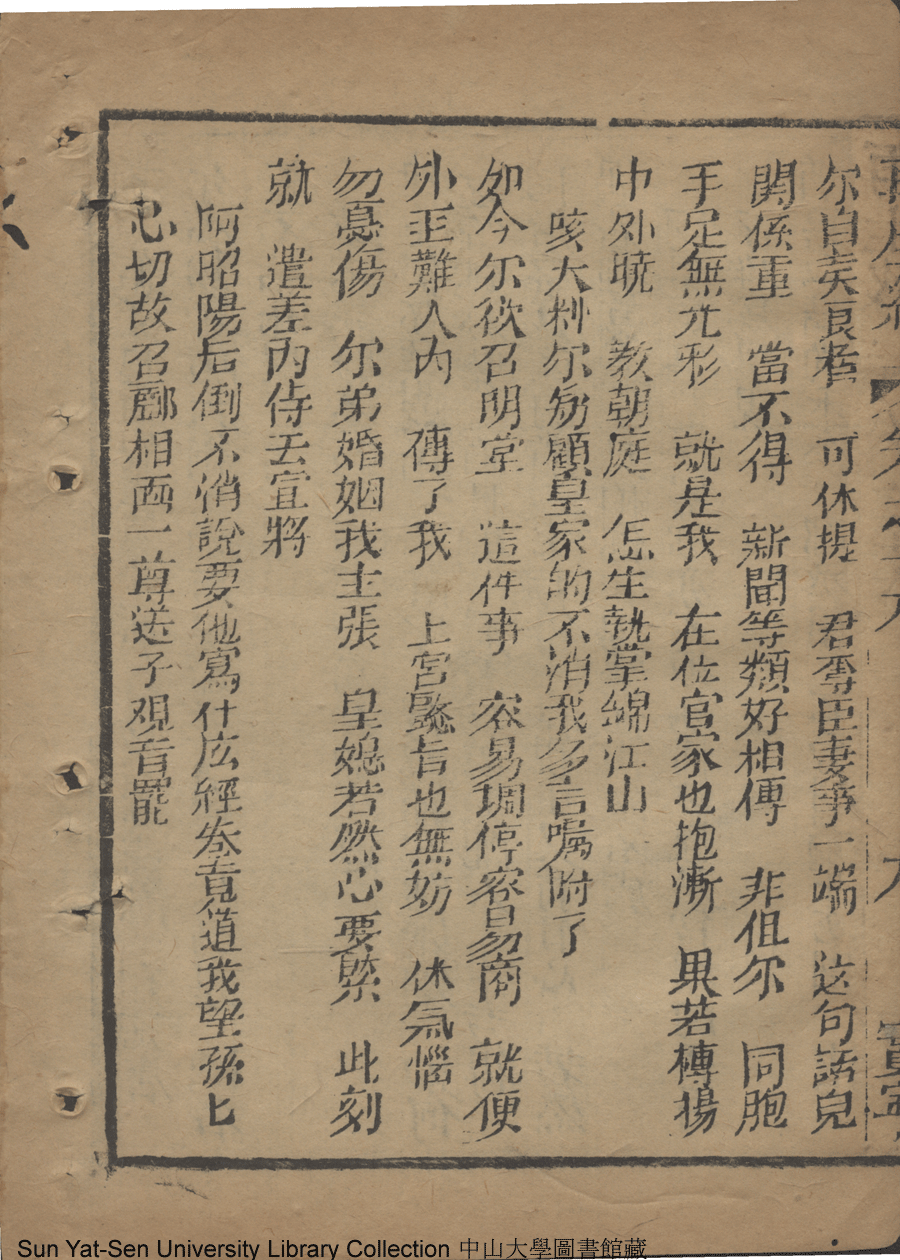 尔自走良为 可休提 君奪臣妻事一端 这句話皃
関係重 當不得 新聞等類好相傳 非但尔 同胞
手足無光彩 就是我 在位官家也抱漸 果若槫揚
中外暁 教朝庭 怎生執掌綿江山
咳大料尔多顧皇家的不消我多言嘱咐了
如今尔欲召明堂 這件事 容易调停容易商 就便
外王難人內 傳了我 上宮懿旨也無妨 休氣惱
勿憂傷 尔弟婚姻我主張 皇媳若然心要緊 此刻
就 遣差內侍去宣將
阿昭陽后倒不消說要他寫什広經叁竟道我望孫匕
心切故召酈相画一尊送子观音罷
Sun Yat-Sen University Library Collection 中山大學圖書館藏